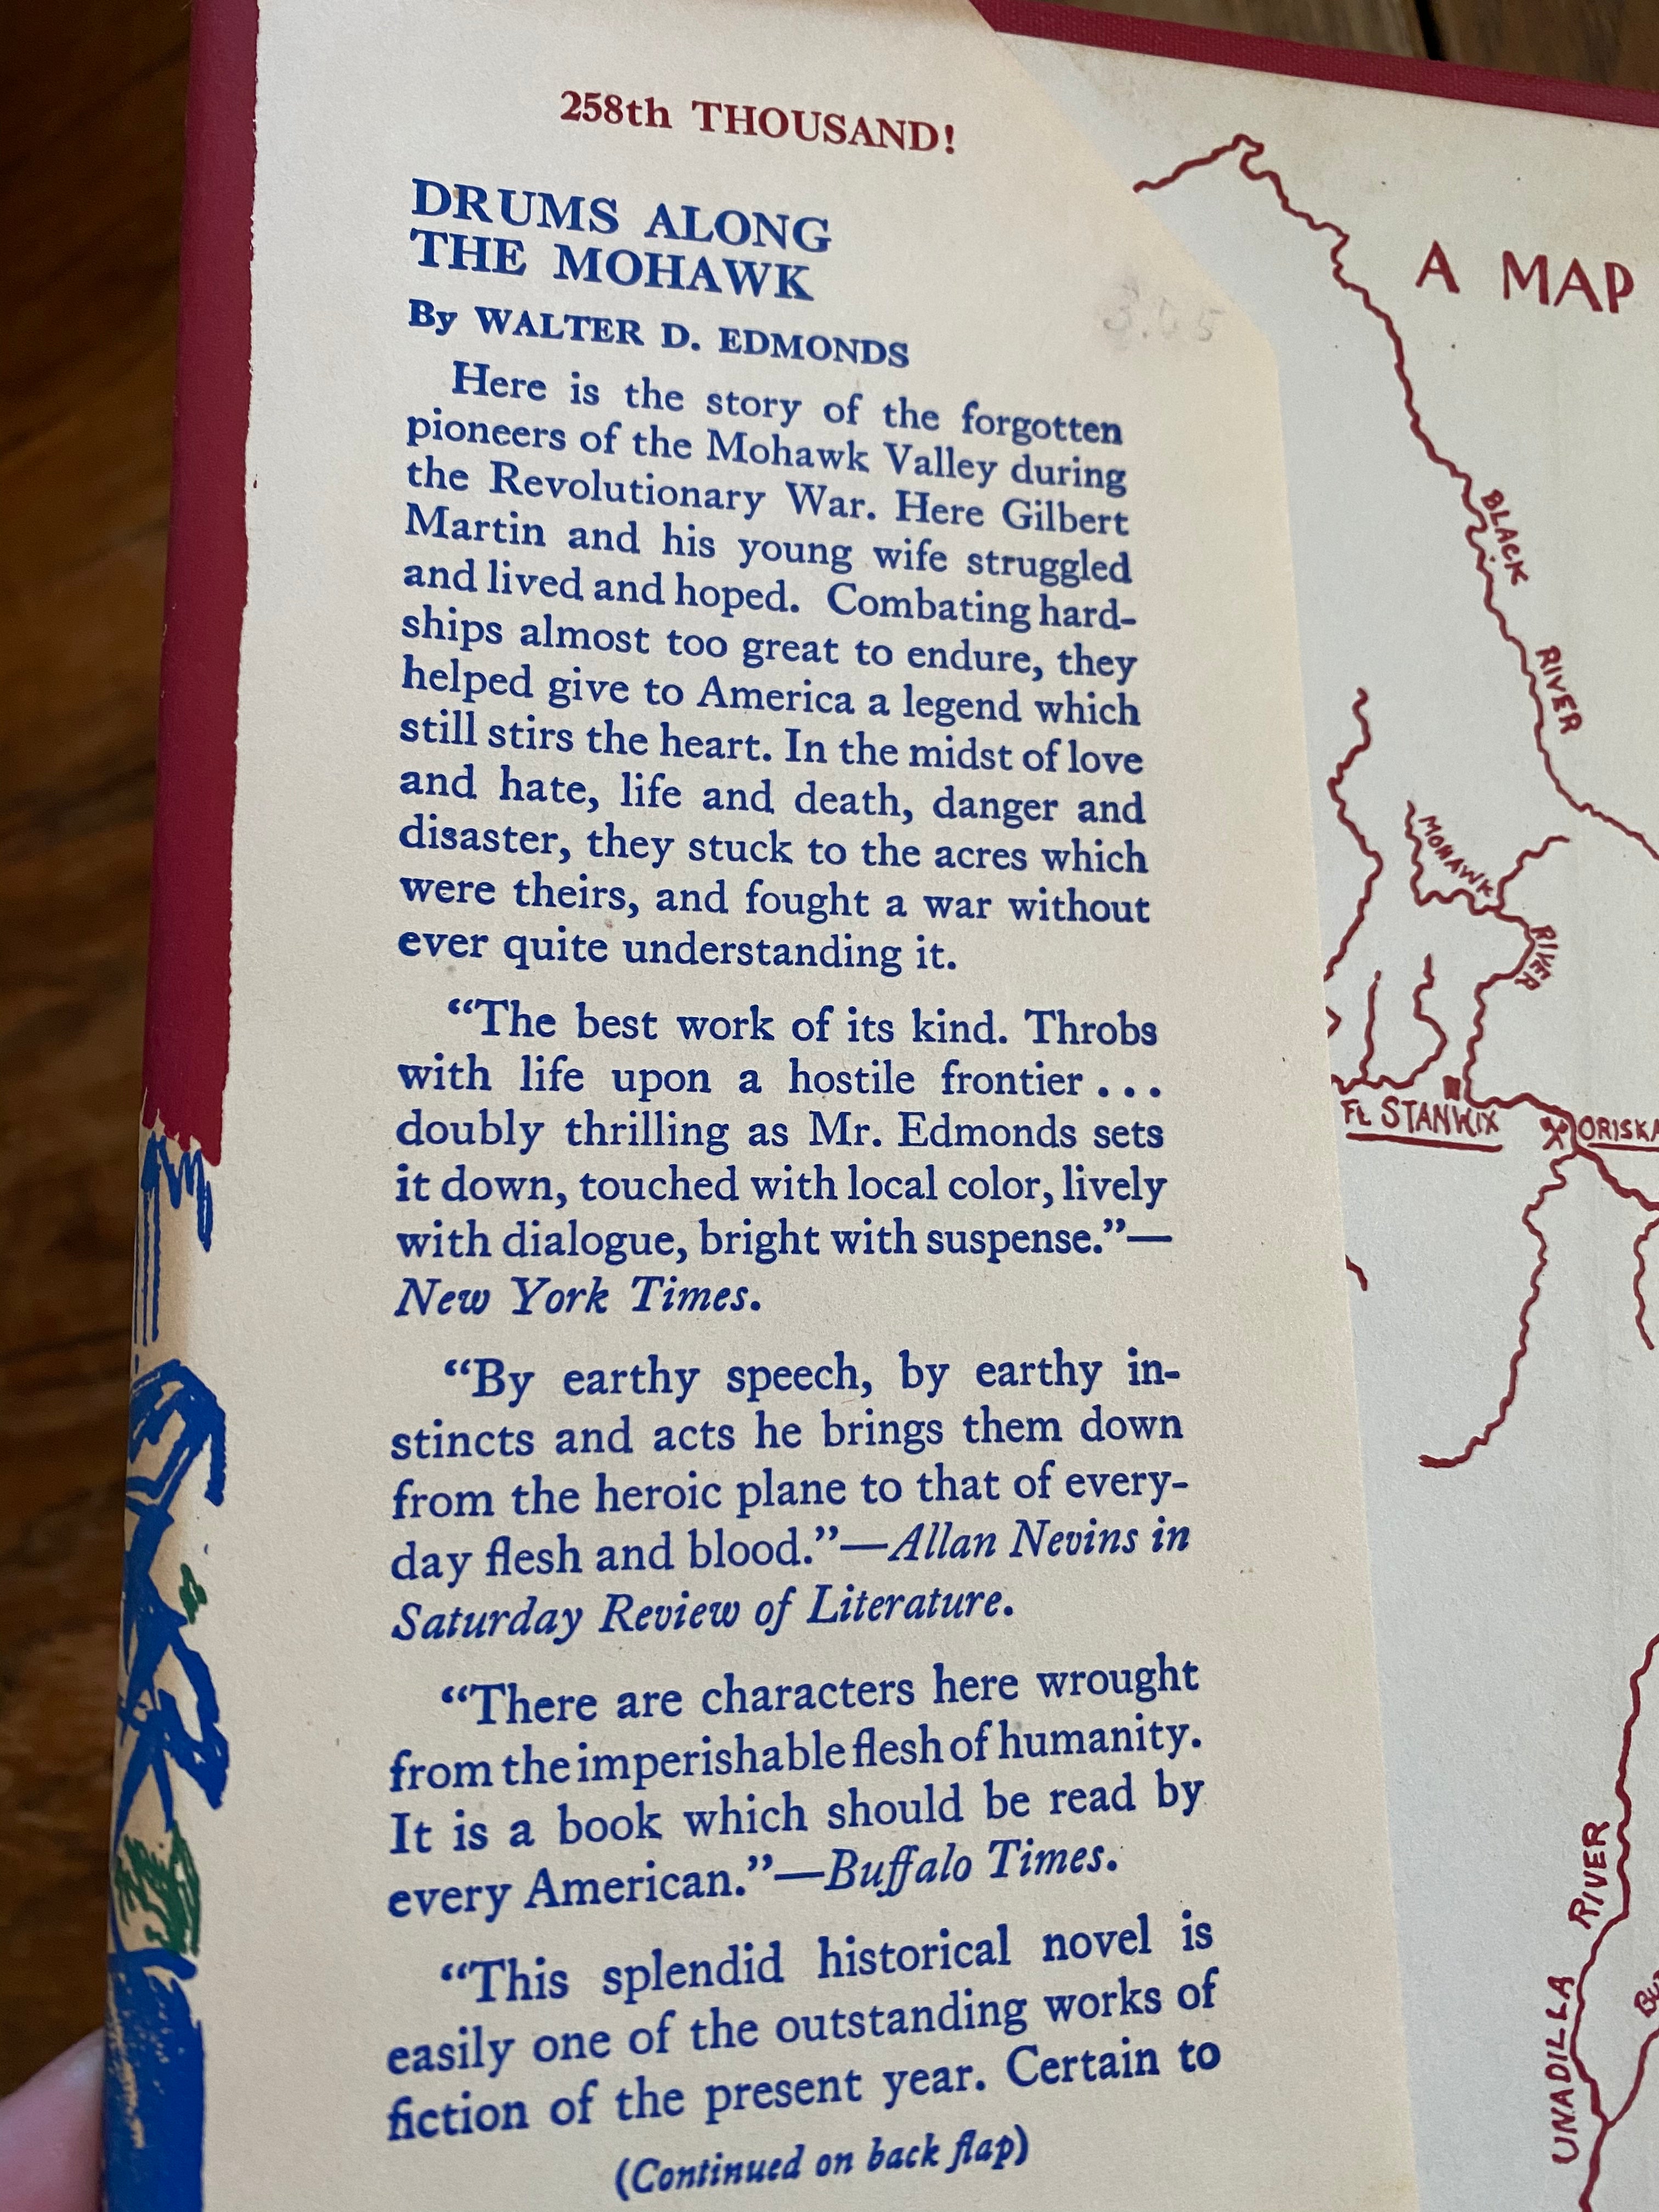 258th THOUSAND!
DRUMS ALONG
THE MOHAWK
By WALTER D. EDMONDS
Here is the story of the forgotten
pioneers of the Mohawk Valley during
the Revolutionary War. Here Gilbert
Martin and his young wife struggled
and lived and hoped. Combating hard-
ships almost too great to endure, they
helped give to America a legend which
still stirs the heart. In the midst of love
and hate, life and death, danger and
disaster, they stuck to the acres which
were theirs, and fought a war without
ever quite understanding it.
“The best work of its kind. Throbs
with life upon a hostile frontier . . .
doubly thrilling as Mr. Edmonds sets
it down, touched with local color, lively
with dialogue, bright with suspense.”—
New York Times.
“By earthy speech, by earthy in-
stincts and acts he brings them down
from the heroic plane to that of every-
day flesh and blood.”—Allan Nevins in
Saturday Review of Literature.
“There are characters here wrought
from the imperishable flesh of humanity.
It is a book which should be read by
every American.”—Buffalo Times.
“This splendid historical novel is
easily one of the outstanding works of
fiction of the present year. Certain to
(Continued on back flap)
3.05
A MAP
BLACK
RIVER
MOHAWK
RIVER
Ft. STANWIX
ORISKA
RIVER
UNADILLA